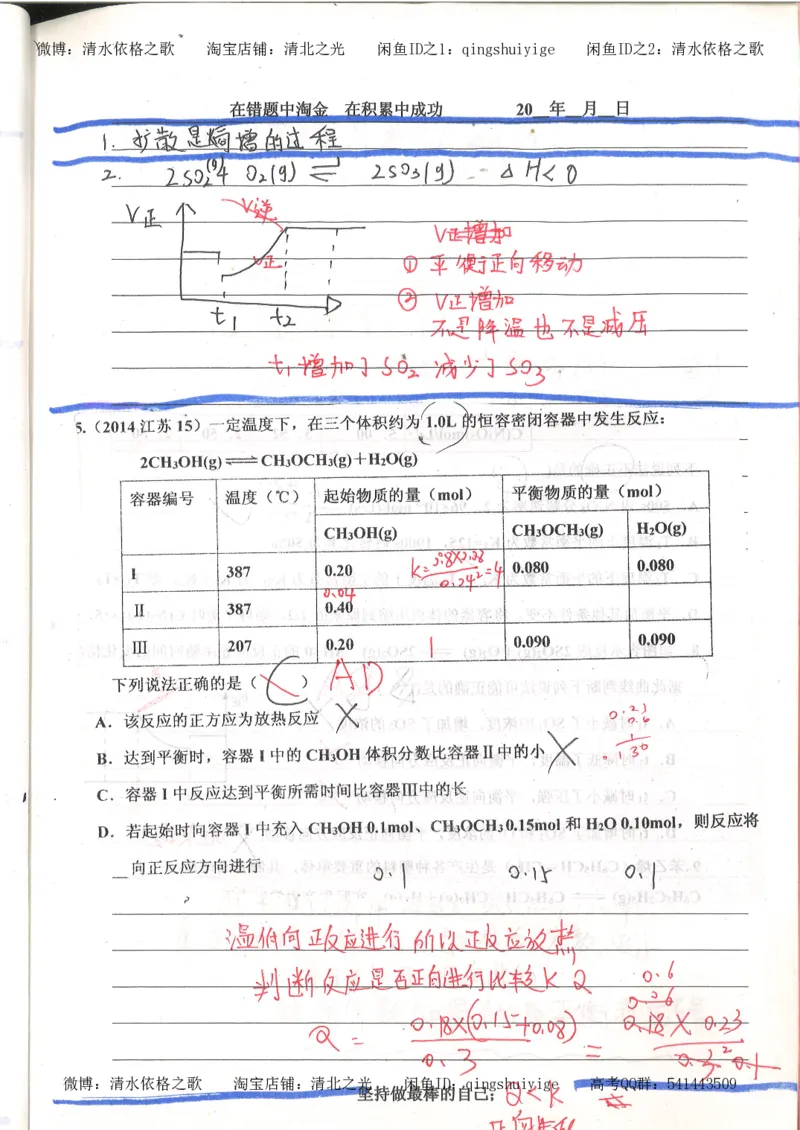 微博：清水依格之歌 淘宝店铺：清北之光 闲鱼ID之1：qingshuiyige 闲鱼ID之2：清水依格之歌
在错题中淘金 在积累中成功 20__年__月__日
1. 扩散是熵增的过程
2. 2SO2(g)+O2(g) ⇌ 2SO3(g) ΔH<0
V正
V逆
V正
t1 t2
V正增加
① 平衡正向移动
② V正增加
不是降温也不是减压
t1增加了SO2 减少了SO3
5.（2014 江苏 15）一定温度下，在三个体积约为 1.0L 的恒容密闭容器中发生反应：
2CH3OH(g) ⇌ CH3OCH3(g)+H2O(g)
容器编号 温度（℃） 起始物质的量（mol） 平衡物质的量（mol）
CH3OH(g) CH3OCH3(g) H2O(g)
Ⅰ 387 0.20 0.080 0.080
0.04
Ⅱ 387 0.40
Ⅲ 207 0.20 0.090 0.090
下列说法正确的是（ C ） AD
A．该反应的正方应为放热反应
B．达到平衡时，容器Ⅰ中的 CH3OH 体积分数比容器Ⅱ中的小
C．容器Ⅰ中反应达到平衡所需时间比容器Ⅲ中的长
D．若起始时向容器Ⅰ中充入 CH3OH 0.1mol、CH3OCH3 0.15mol 和 H2O 0.10mol，则反应将
__向正反应方向进行
0.1 0.15 0.1
温低向正反应进行 所以正反应放热
判断反应是否正向进行比较K Q
Q = 0.18×(0.15+0.08) / 0.3 = 0.18×0.23
微博：清水依格之歌 淘宝店铺：清北之光 闲鱼ID：qingshuiyige 高考QQ群：541443509
坚持做最棒的自己；
Q<K